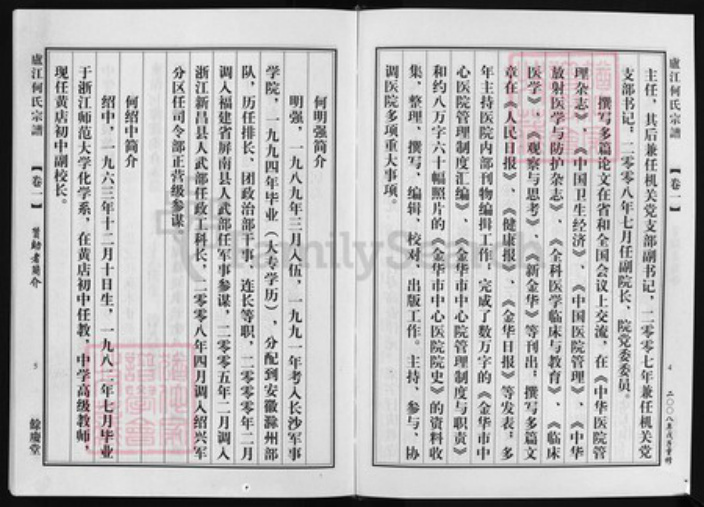 盧江何氏宗譜
【卷一】
4
二〇〇八年戊子重修
主任，其后兼任机关党支部副书记，二零零七年兼任机关党
支部书记；二零零八年七月任副院长、院党委委员。
撰写多篇论文在省和全国会议上交流，在《中华医院管
理杂志》、《中国卫生经济》、《中国医院管理》、《中华
放射医学与防护杂志》、《全科医学临床与教育》、《临床
医学》、《观察与思考》、《新金华》等刊出；撰写多篇文
章在《人民日报》、《健康报》、《金华日报》等发表；多
年主持医院内部刊物编辑工作，完成了数万字的《金华市中
心医院管理制度汇编》、《金华市中心院管理制度与职责》
和约八万字六十幅照片的《金华市中心医院院史》的资料收
集、整理、撰写、编辑、校对、出版工作。主持、参与、协
调医院多项重大事项。
何明强简介
明强，一九八九年三月入伍，一九九一年考入长沙军事
学院，一九九四年毕业（大专学历），分配到安徽滁州部
队，历任排长、团政治部干事、连长等职，二零零零年二月
调入福建省屏南县人武部任军事参谋，二零零五年二月调入
浙江新昌县人武部任政工科长，二零零八年四月调入绍兴军
分区任司令部正营级参谋
何绍中简介
绍中，一九六三年十二月十日生，一九八二年七月毕业
于浙江师范大学化学系，在黄店初中任教，中学高级教师，
现任黄店初中副校长。
盧江何氏宗譜
【卷一】
贤幼者简介
5
餘慶堂
FamilySearch